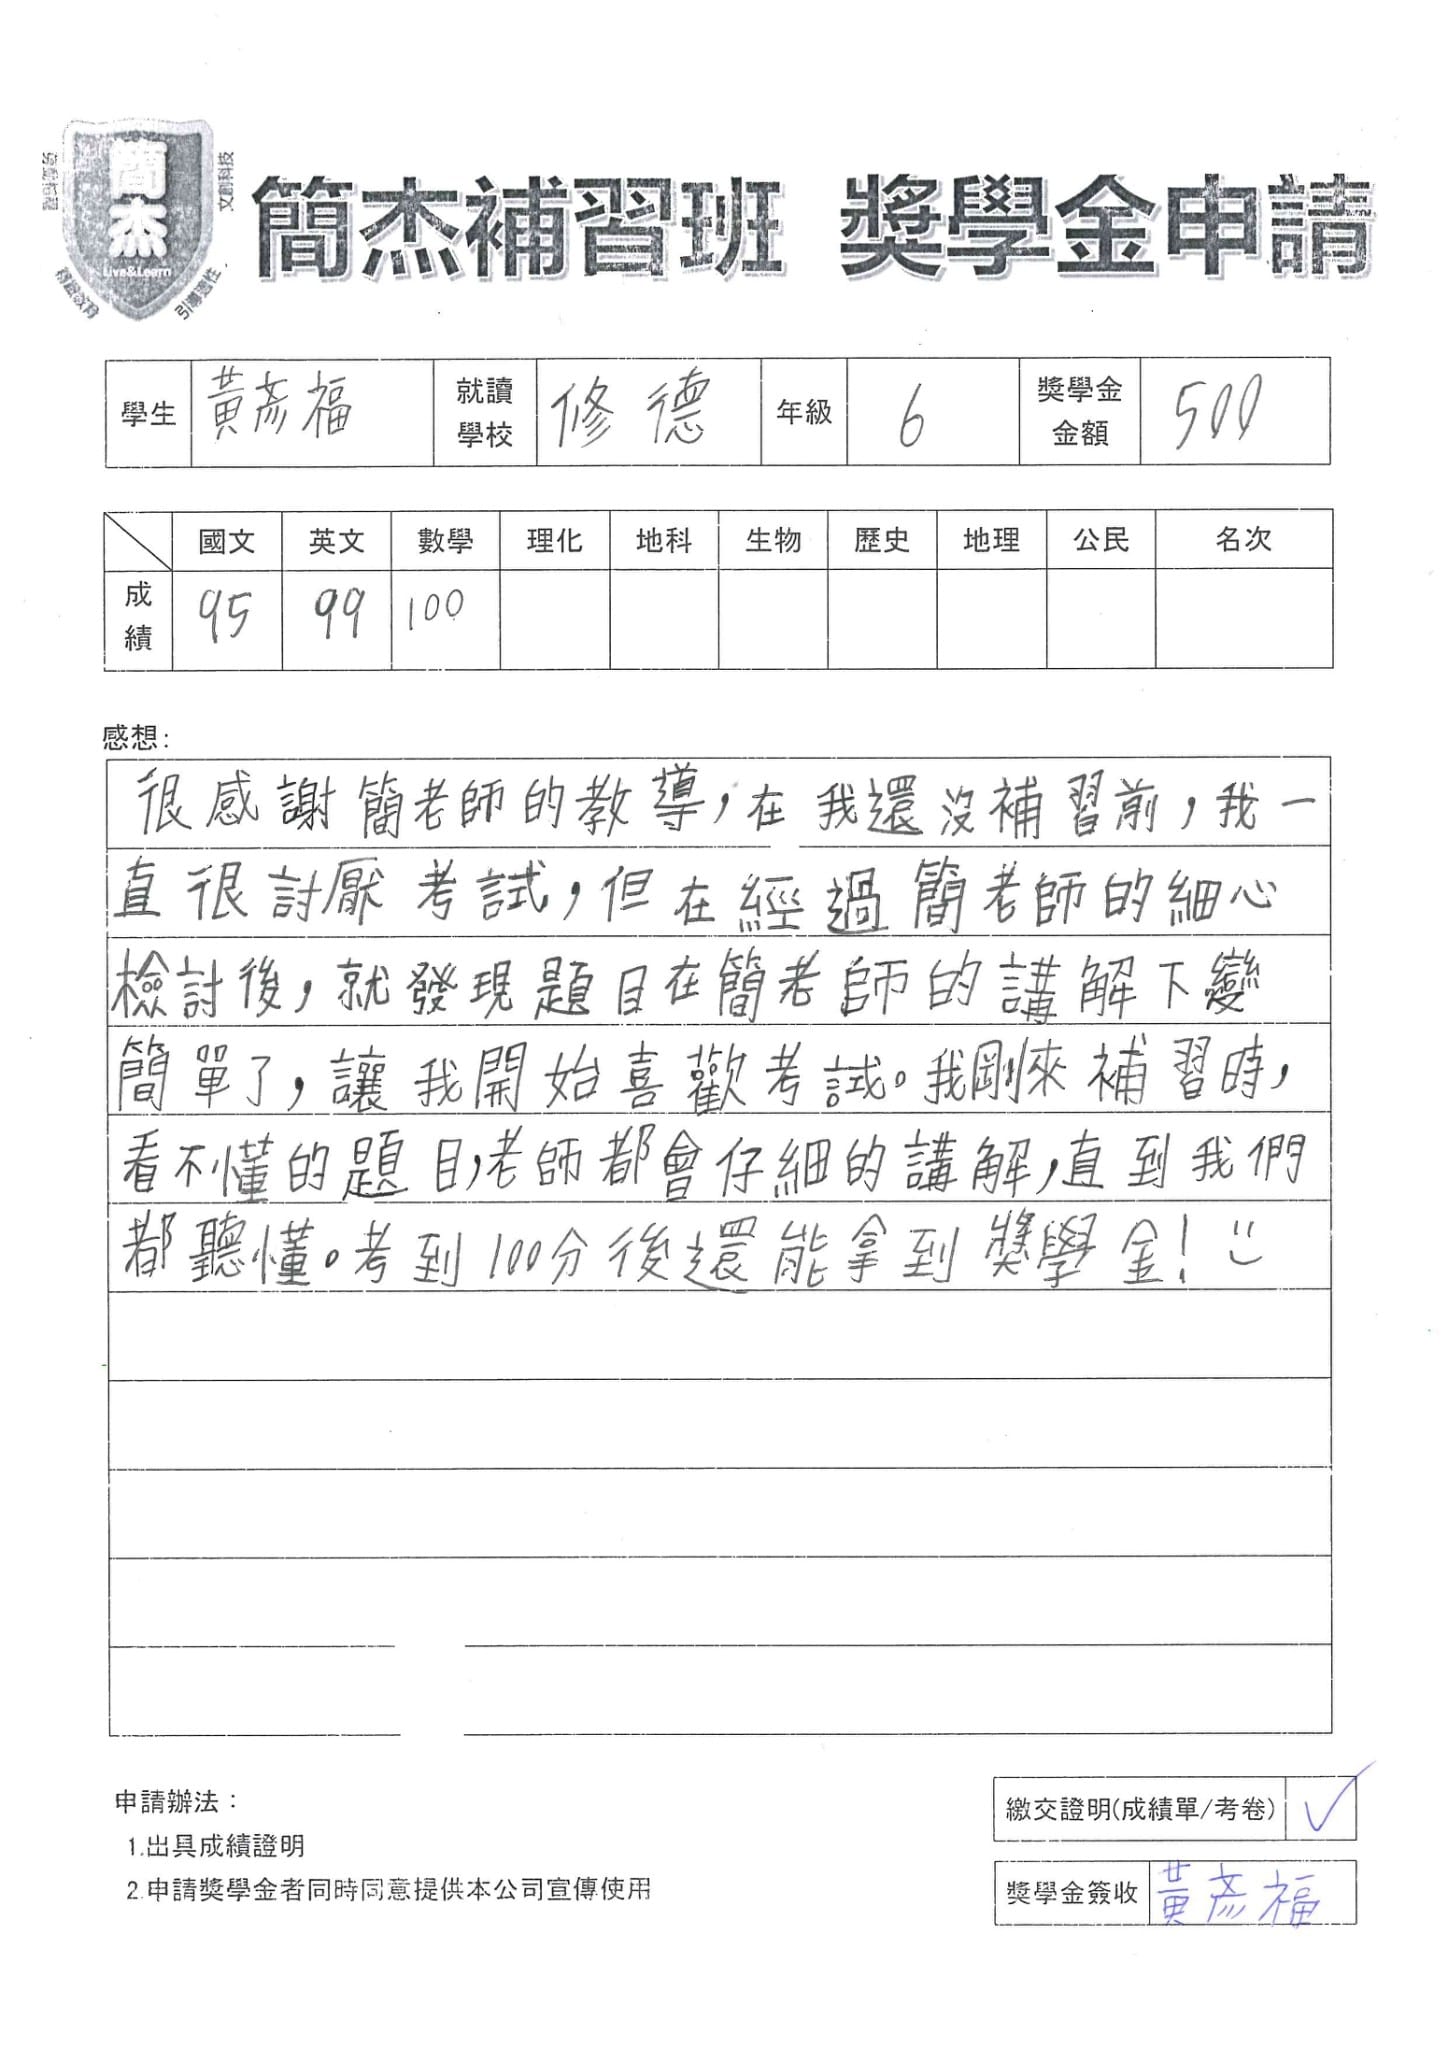 簡杰
Live&Learn
文創科技
簡杰補習班 獎學金申請
學生 黃彥福 就讀學校 修德 年級 6 獎學金金額 500
國文 英文 數學 理化 地科 生物 歷史 地理 公民 名次
成績 95 99 100
感想:
很感謝簡老師的教導,在我還沒補習前,我一
直很討厭考試,但在經過簡老師的細心
檢討後,就發現題目在簡老師的講解下變
簡單了,讓我開始喜歡考試。我剛來補習時,
看不懂的題目,老師都會仔細的講解,直到我們
都聽懂。考到100分後還能拿到獎學金!
申請辦法:
1.出具成績證明
2.申請獎學金者同時同意提供本公司宣傳使用
繳交證明(成績單/考卷) ✓
獎學金簽收 黃彥福